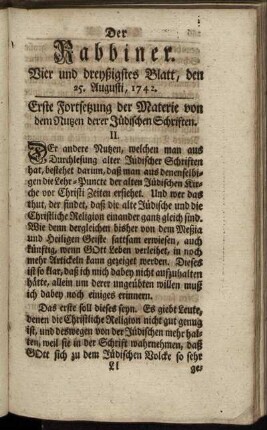 Der
Rabbiner.
Vier und dreyßigstes Blatt, den
25. Augusti, 1742.
Erste Fortsetzung der Materie von
dem Nutzen derer Jüdischen Schriften.
II.
DEr andere Nutzen, welchen man aus
Durchlesung alter Jüdischer Schriften
hat, bestehet darum, daß man aus denenselbi-
gen die Lehr-Puncte der alten Jüdischen Kir-
che vor Christi Zeiten ersiehet. Und wer das
thut, der findet, daß die alte Jüdische und
die Christliche Religion einander gantz gleich sind.
Wie denn dergleichen bisher von dem Meßia
und Heiligen Geiste sattsam erwiesen, auch
künftig, wenn GOtt Leben verleihet, in noch
mehr Artickeln kann gezeiget werden. Dieses
ist so klar, daß ich mich dabey nicht aufzuhalten
hätte, allein um derer ungeübten willen muß
ich dabey noch einiges erinnern.
Das erste soll dieses seyn. Es giebt Leute,
denen die Christliche Religion nicht gut genug
ist, und deswegen von der Jüdischen mehr hal-
ten, weil sie in der Schrift wahrnehmen, daß
GOtt sich zu dem Jüdischen Volcke so sehr
Ll
ge-